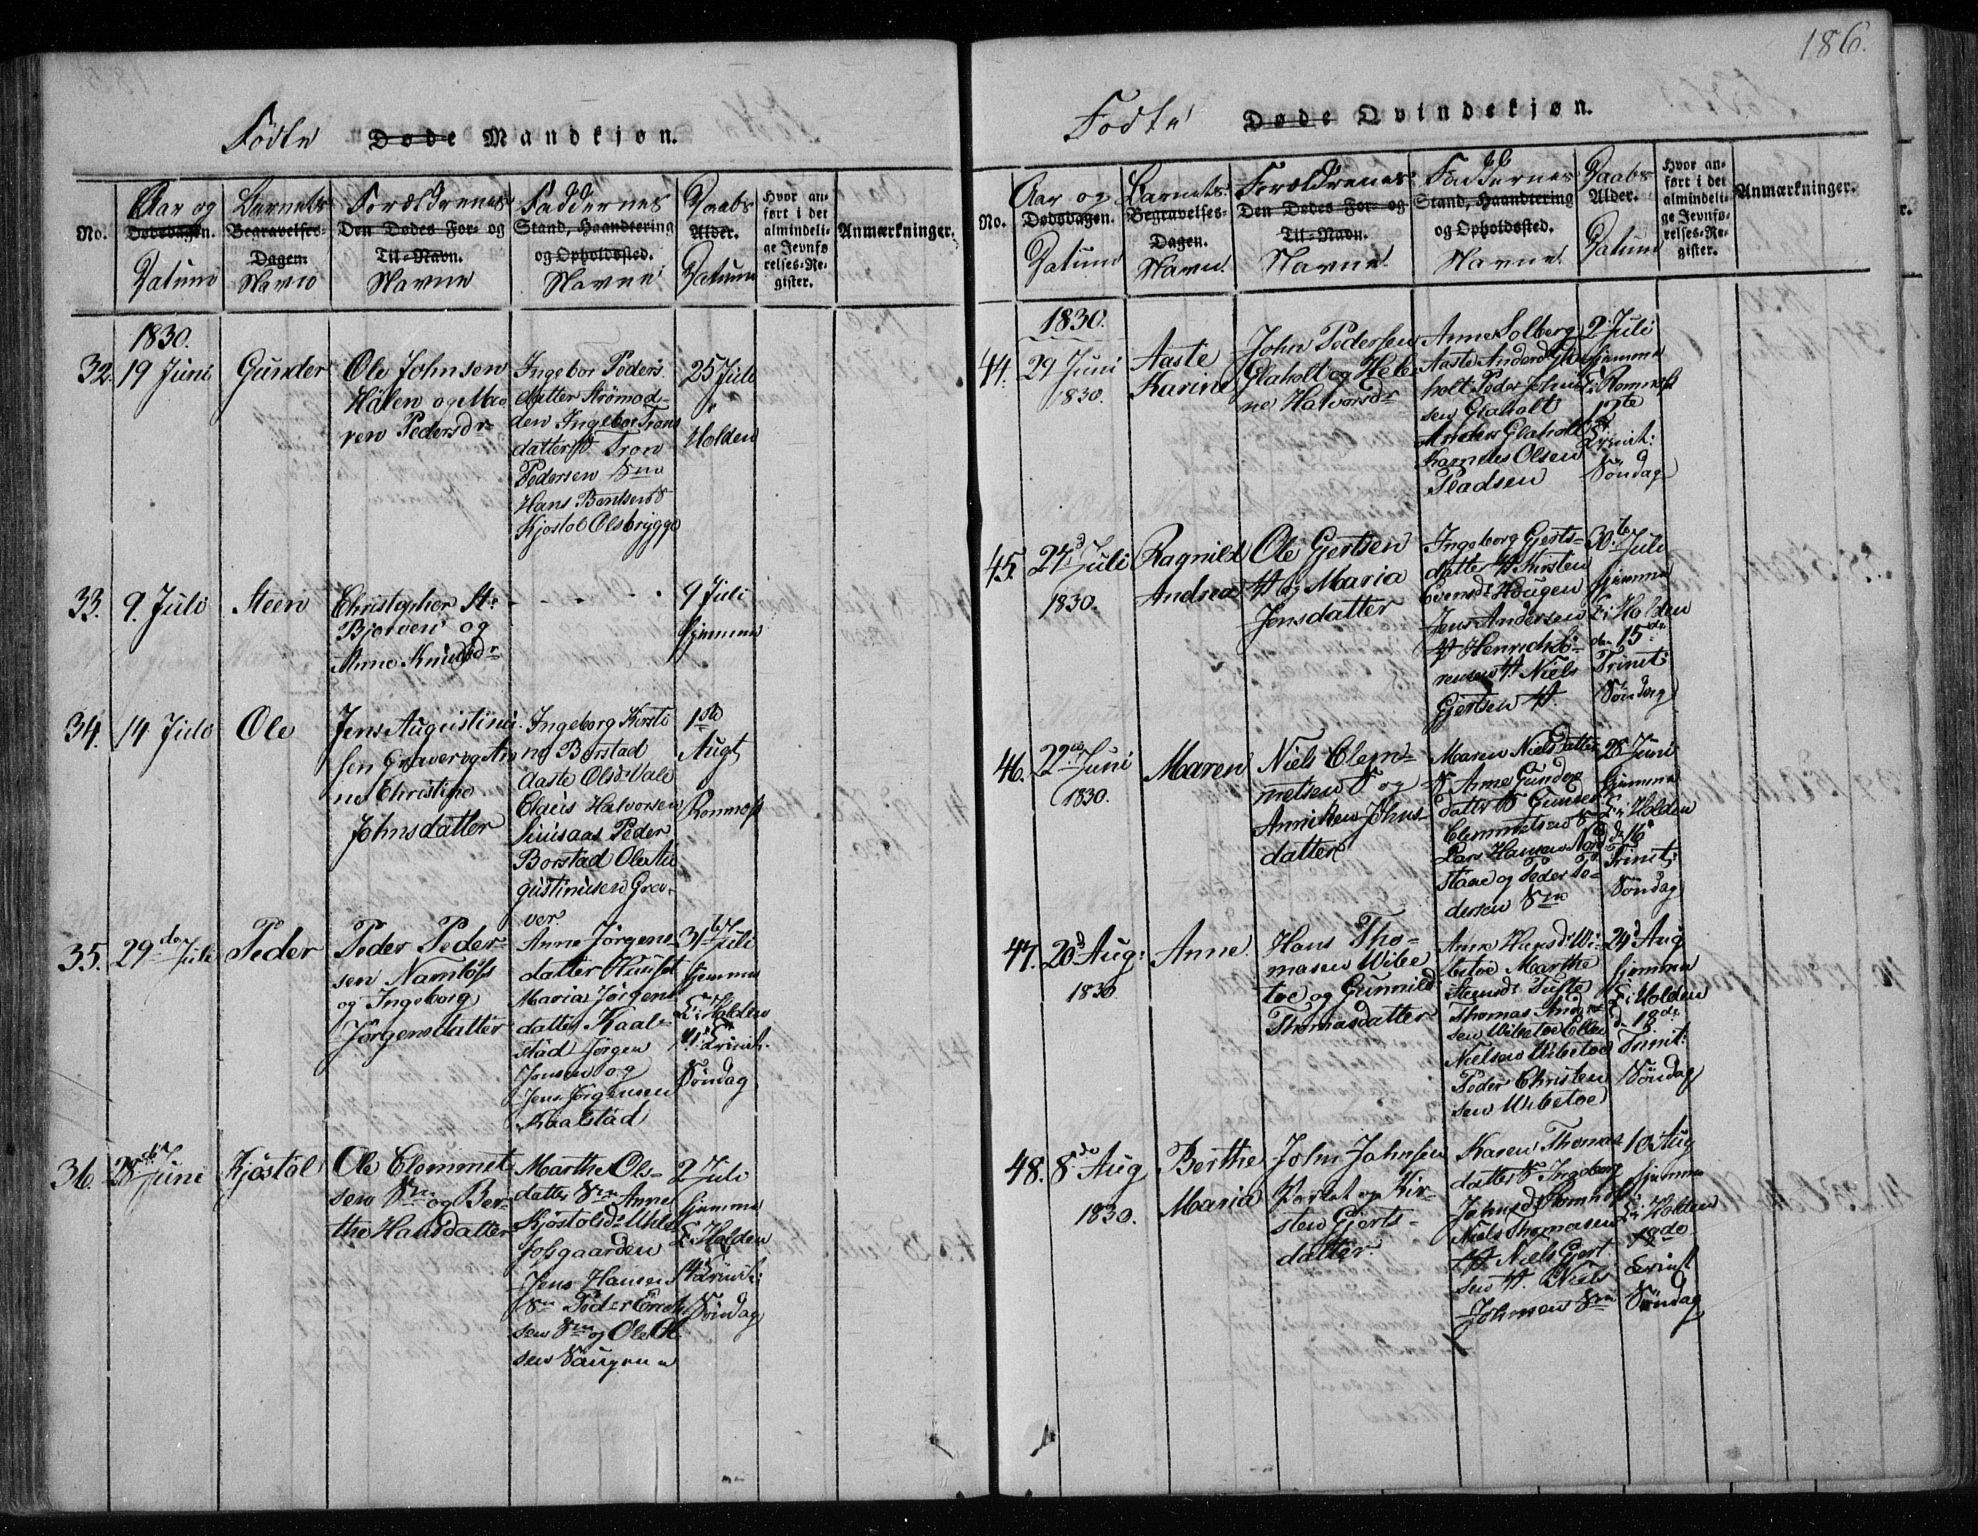 186.
Fødte Døde Mandkjøn.
No.
Aar og Dødsdagen. Datum
Barnets Begravelses-Dagen. Navn
Forældrenes Den Dødes For- og Til-Navn. Navne
Faddernes Stand, Haandtering og Opholdssted. Navne
Daabs Alder. Datum
Hvor anført i det almindelige Jevnførelses-Register.
Anmærkninger.
1830.
32. 19 Juni
Gunder
Ole Johnsen
Holen og Ma
ren Pedersdr
Ingebor Peders
datter Strømod
den Ingebor Trons
datter St. Tron
Pedersen
Hans Bentsen
Kjøstol Olsbrygge
25 Juli
Holden
33. 9. Juli
Steen
Christopher St.
Bjørven og
Anne Knudsdr
9 Juli
hjemme
34. 14 Juli
Ole
Jens Augustinu
sen Graver og An
ne Christine
Johnsdatter
Ingeborg Kirsti
ne Borstad
Aaste Olsd. Vale
Claus Halvorsen
Peder
Borstad Ole Au
gustinusen Gra
ver
1ste
Augt
Romnæs
35. 29de Juli
Peder
Peder Peder-
sen Namløs
og Ingeborg
Jørgensdatter
Anne Jørgens
datter
Maria Jørgens
datter Kaal-
stad Jørgen
Jensen og
Jens Jørgensen
Kaalstad
31te Juli
hjemme
i Holden
Trinit.
Søndag
36. 28de Juni
Kjøstol
Ole Clemmet
sen og Ber-
the Hansdatter
Marthe Ols-
datter Anne
Kjøstolsdr Uhle
fosgaarden
Jens Hansen
Peder
sen og Ole Ol
sen
2 Juli
hjemme
Holden
Trinit:
Søndag
Fødte Døde Qvindekjøn.
No.
Aar og Dødsdagen. Datum
Barnets Begravelses-Dagen. Navn
Forældrenes Den Dødes For- og Til-Navn. Navne
Faddernes Stand, Haandtering og Opholdssted. Navne
Daabs Alder. Datum
Hvor anført i det almindelige Jevnførelses-Register.
Anmærkninger.
1830.
44. 29 Juni
1830.
Aaste
Karine
John Pedersen
Glaholt og Hele
ne Halvorsdr
Anne Solberg
Aaste Andersd Gla
holt Peder John
sen Glaholt
Anders Glaholt
Hamles Olsen
Pladsen
2 Juli
hjemme
i Romnæs
12te
Trinit:
Søndag
45. 27d Juli
1830.
Ragnild
Andrea
Ole Gertsen
og Maria
Jensdatter
Ingeborg Gierts-
datter Kirsten
Evensdr Haugen
Jens Andersen
Henrich
Niels
Gjertsen
30te Juli
hjemme
i Holden
den 15de
Trinit:
Søndag
46. 22de Juni
1830.
Maren
Niels Clem-
metsen og
Anniken Johns
datter
Maren Nielsdatter
Anne Gunders
datter Gunder
Clemmetsen
Lars Hansen Nord
staae og Peder Pe-
dersen
28 Juni
hjemme
i Holden
d. 16
Trinit:
Søndag
47. 20d Aug:
1830.
Anne
Hans Tho-
masen Wibe
toe og Gunnild
Thomasdatter
Anne Hansdr Wi
betoe Marthe
Steensdr Tufte
Thomas Anders
sen Wibetoe Ellen
Nielsen Wibetoe
Peder Christen
sen Wibetoe
29d Aug
hjemme
i Holden
d. 18de
Trinit:
Søndag
48. 8de Aug
1830.
Berthe
Maria
John Johnsen
og Kir-
sten Gjerts-
datter
Karen Thomas
datter Ingeborg
Johnsd Romholt
Niels Thomasen
Niels Gjert
sen Niels
Johnsen
10 Aug
hjemme
i Holden
Trinit
Søndag